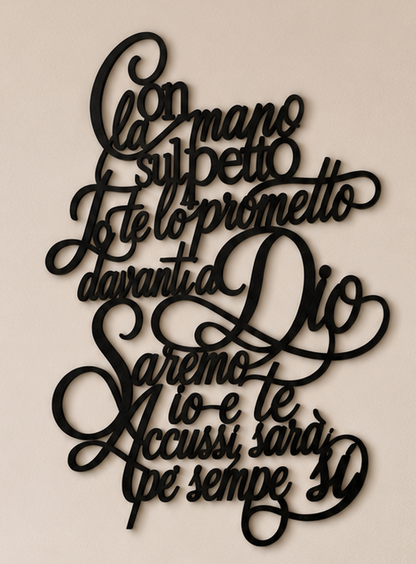 Con
la mano
sul petto
Io te lo prometto
davanti a Dio
Saremo
io e te
Accussì sarà,
pe' sempe sì